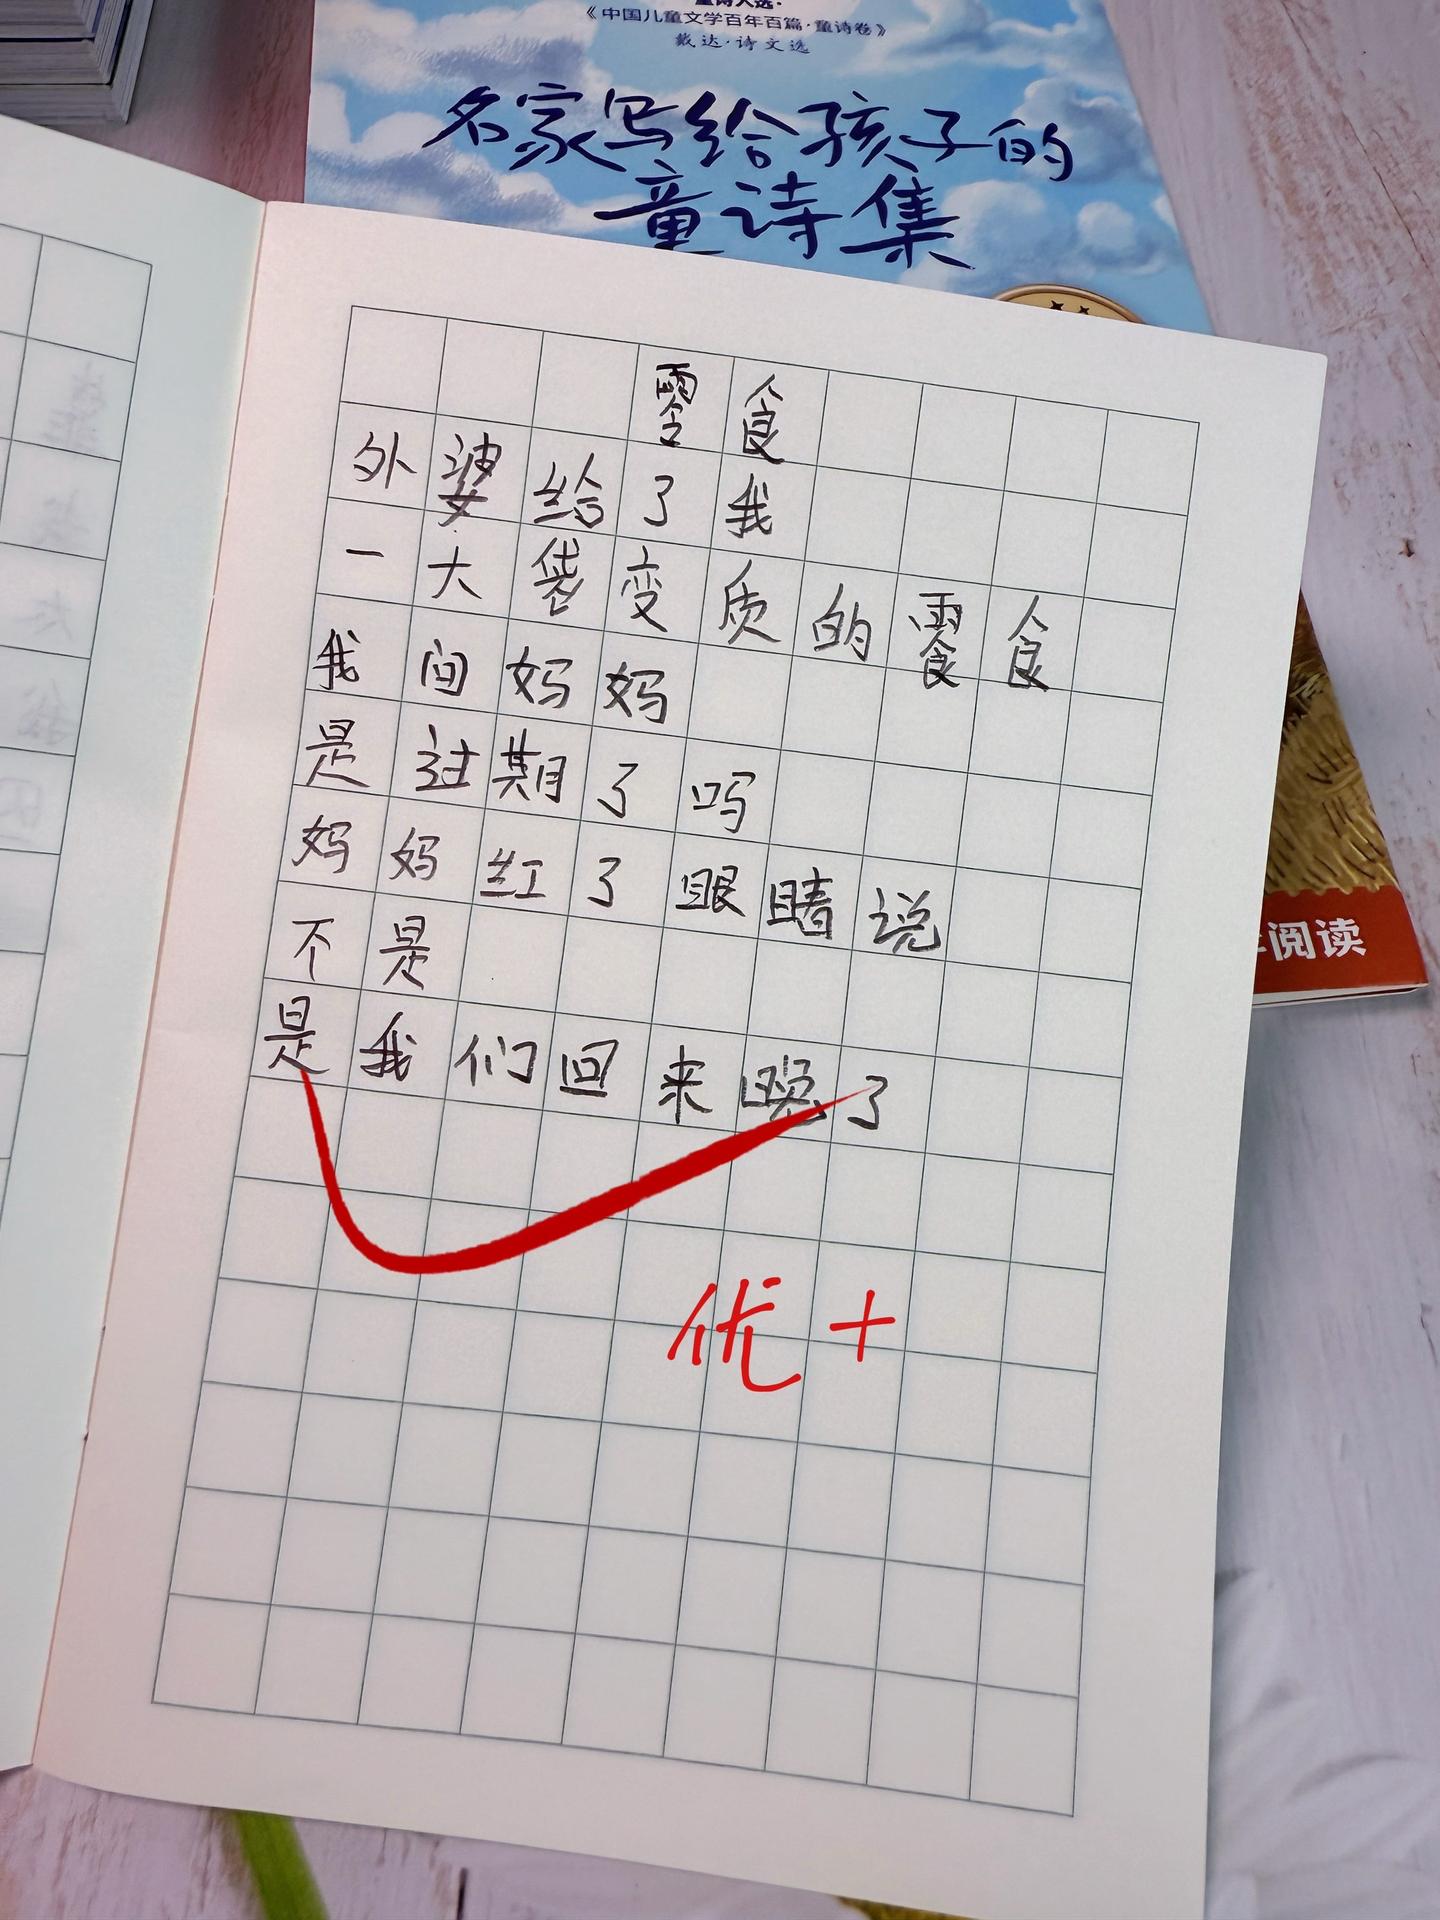 《中国儿童文学百年百篇·童诗卷》
戴达·诗文选
名家写给孩子的
童诗集
零食
外婆给了我
一大袋变质的零食
我问妈妈
是过期了吗
妈妈红了眼睛说
不是
是我们回来晚了
优+
阅读